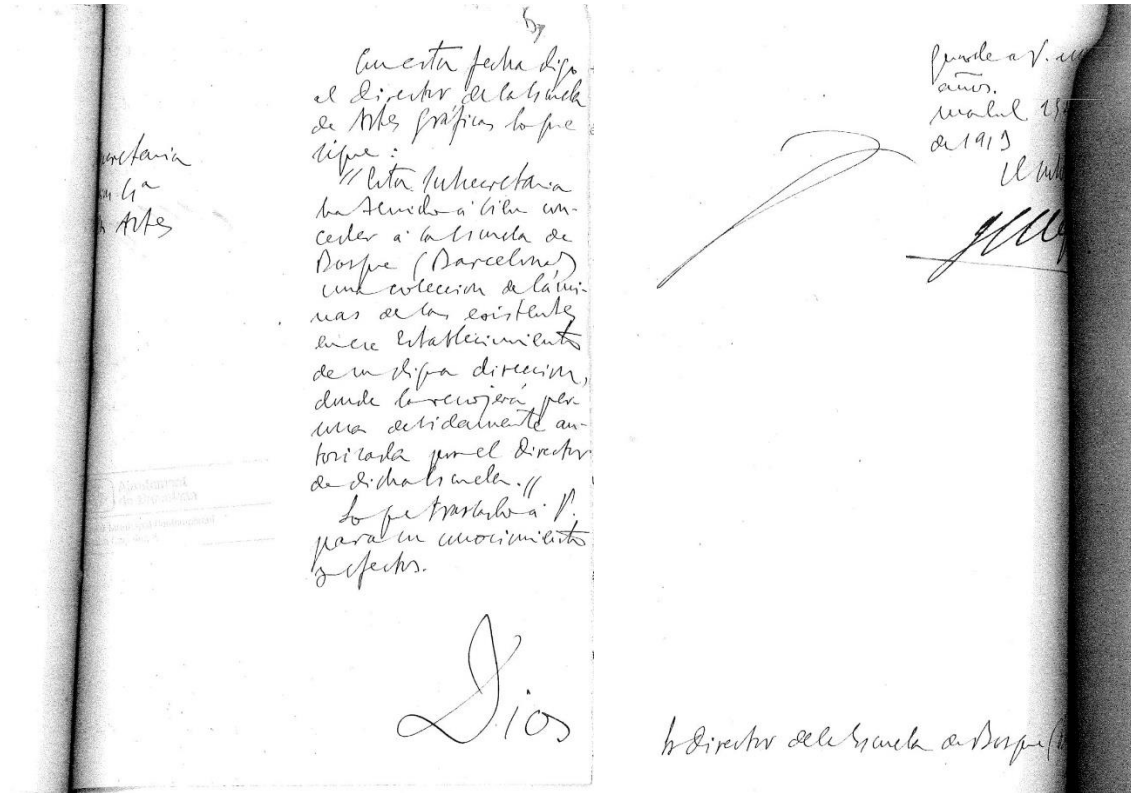 Con esta fecha digo
al Director de la Escuela
de Artes gráficas lo que
sigue:
"Esta Subsecretaria
ha tenido á bien con-
ceder á la Escuela de
Bosque (Barcelona)
una coleccion de lámi-
nas de las existentes
en ese Establecimiento
de su digna direccion,
donde la recojerá per-
sona debidamente au-
torizada por el Director
de dicha Escuela."
Lo que traslado á V.
para su conocimiento
y efectos.
Dios
Artes
Ajuntament
de Barcelona
guarde a V. m
años.
Madrid
de 1919
El
Sr Director de la Escuela de Bosque (